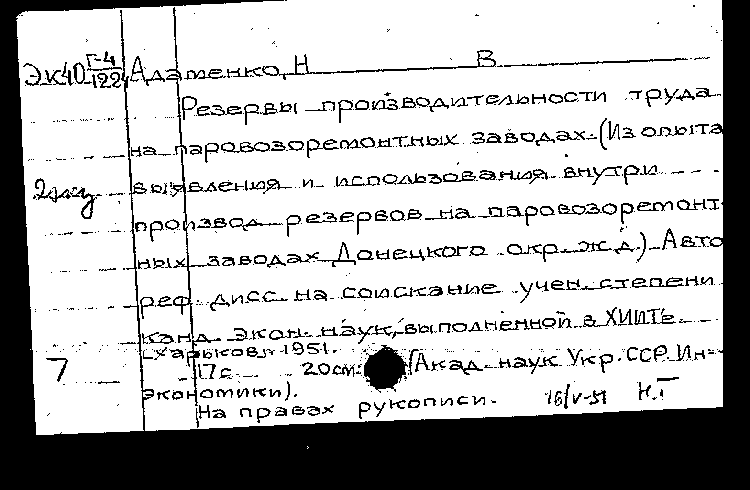 Эк40 Г-4/1224 Адаменко, Н В.
Резервы производительности труда
на паровозоремонтных заводах. (Из опыта
2 экз
выявления и использования внутри
производ. резервов на паровозоремонт-
ных заводах Донецкого окр. ж.д.) Авто
реф. дисс. на соискание учен. степени
канд. экон. наук, выполненной в ХИИТе.
Харьков, 1951.
7
17с. 20см. (Акад. наук Укр. ССР. Ин-
экономики).
На правах рукописи. 16/V-51 Н.Т